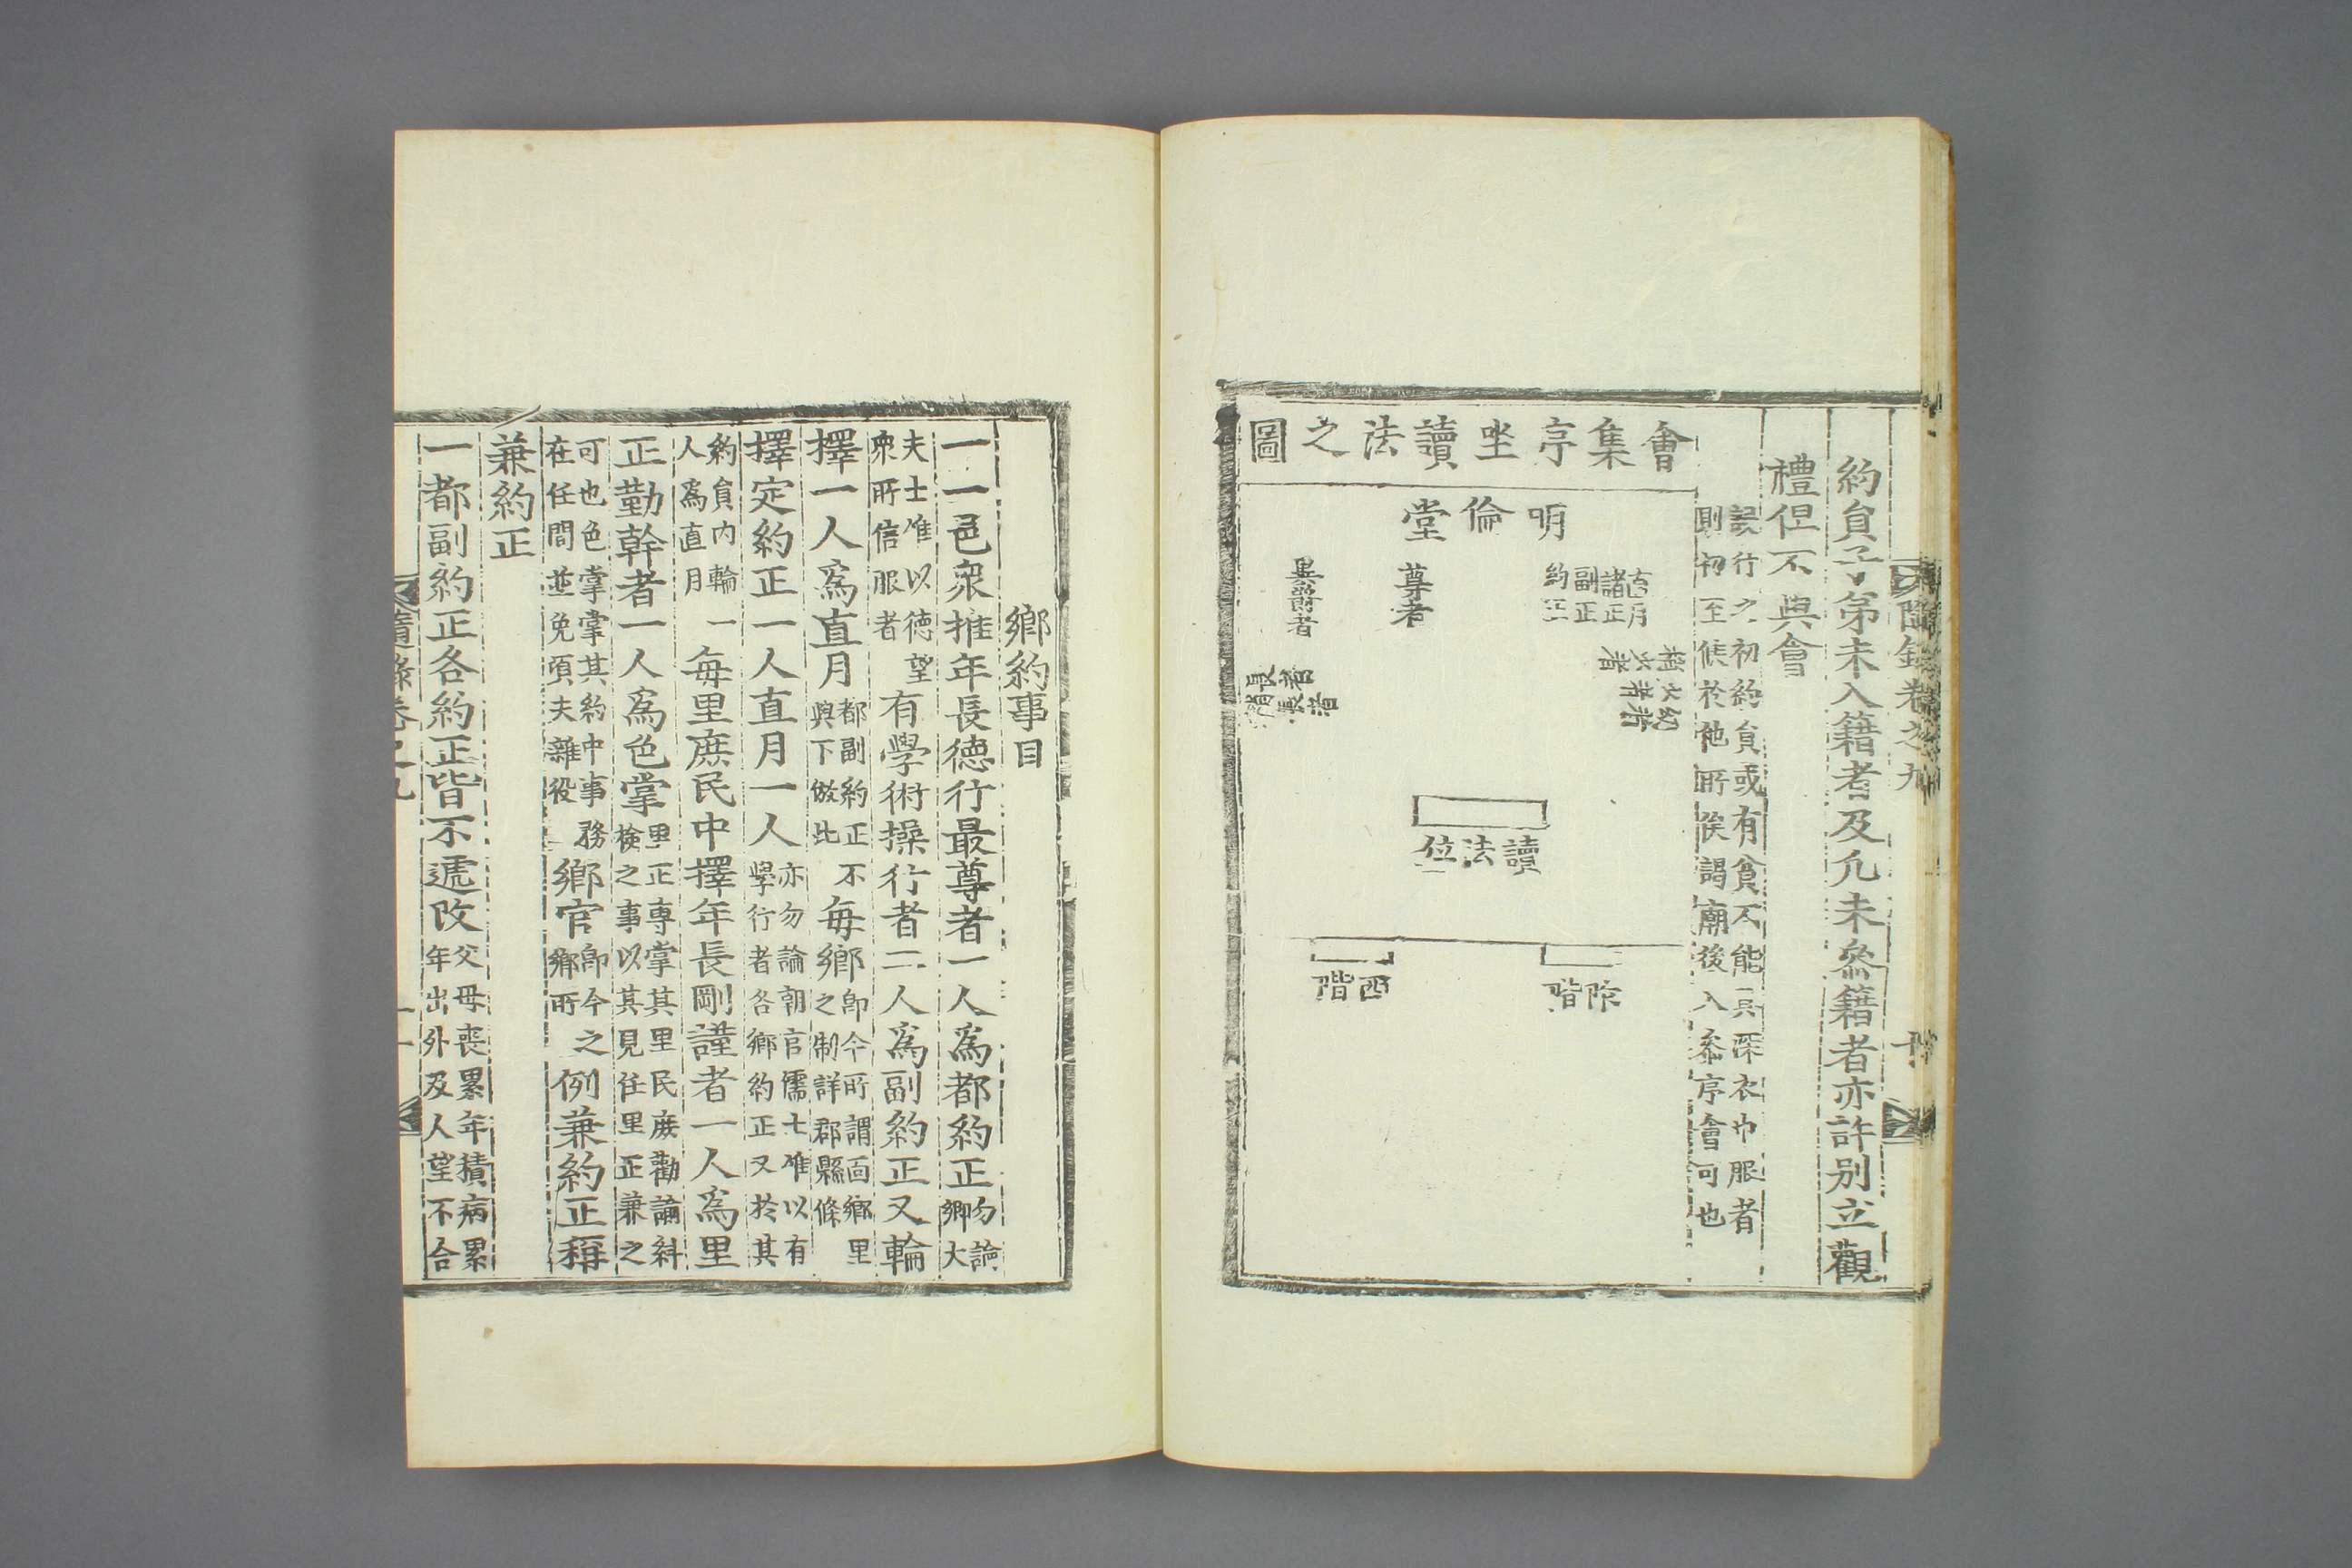 隨錄卷之九
約員子弟未入籍者及凡未叅籍者亦許別立觀
禮但不與會
設行之初約員或有貧不能具深衣巾服者
則初至候於他所俟謁廟後入叅序會可也
會集序坐讀法之圖
明倫堂
直月
諸正
副正
約正
尊者
異爵者
稍少者
少者
幼者
長者
稍長者
讀法位
阼階
西階
鄉約事目
一一邑衆推年長德行最尊者一人爲都約正
勿論
卿大
夫士唯以德望
衆所信服者
有學術操行者二人爲副約正又輪
擇一人爲直月
都副約正不
與下倣此
每鄉
卽今所謂面鄉里
之制詳郡縣條
擇定約正一人直月一人
亦勿論朝官儒士唯以有
學行者各鄉約正又於其
約員內輪一
人爲直月
每里庶民中擇年長剛謹者一人爲里
正勤幹者一人爲色掌
里正專掌其里民庶勸諭糾
檢之事以其見任里正兼之
可也色掌掌其約中事務
在任間並免項夫雜役
鄉官
卽今之
鄉所
例兼約正稱
兼約正
一都副約正各約正皆不遞改
父母喪累年積病累
年出外及人望不合
隨錄卷之九
十一